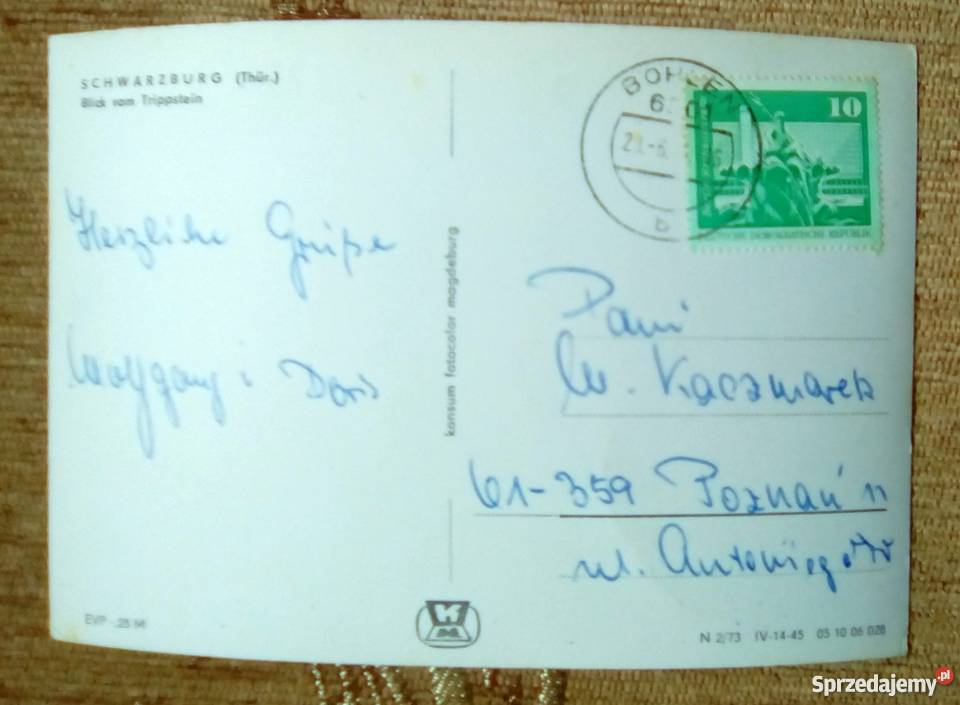 SCHWARZBURG (Thür.)
Blick vom Trippstein
Herzliche Grüße
Wolfgang i Doris
EVP -,25 M
konsum fotocolor magdeburg
BOHLEN
b
10
DEUTSCHE DEMOKRATISCHE REPUBLIK
Pani
W. Kaczmarek
61-359 Poznań 11
ul. Antoniego
N 2/73 IV-14-45 05 10 06 028
Sprzedajemy.pl